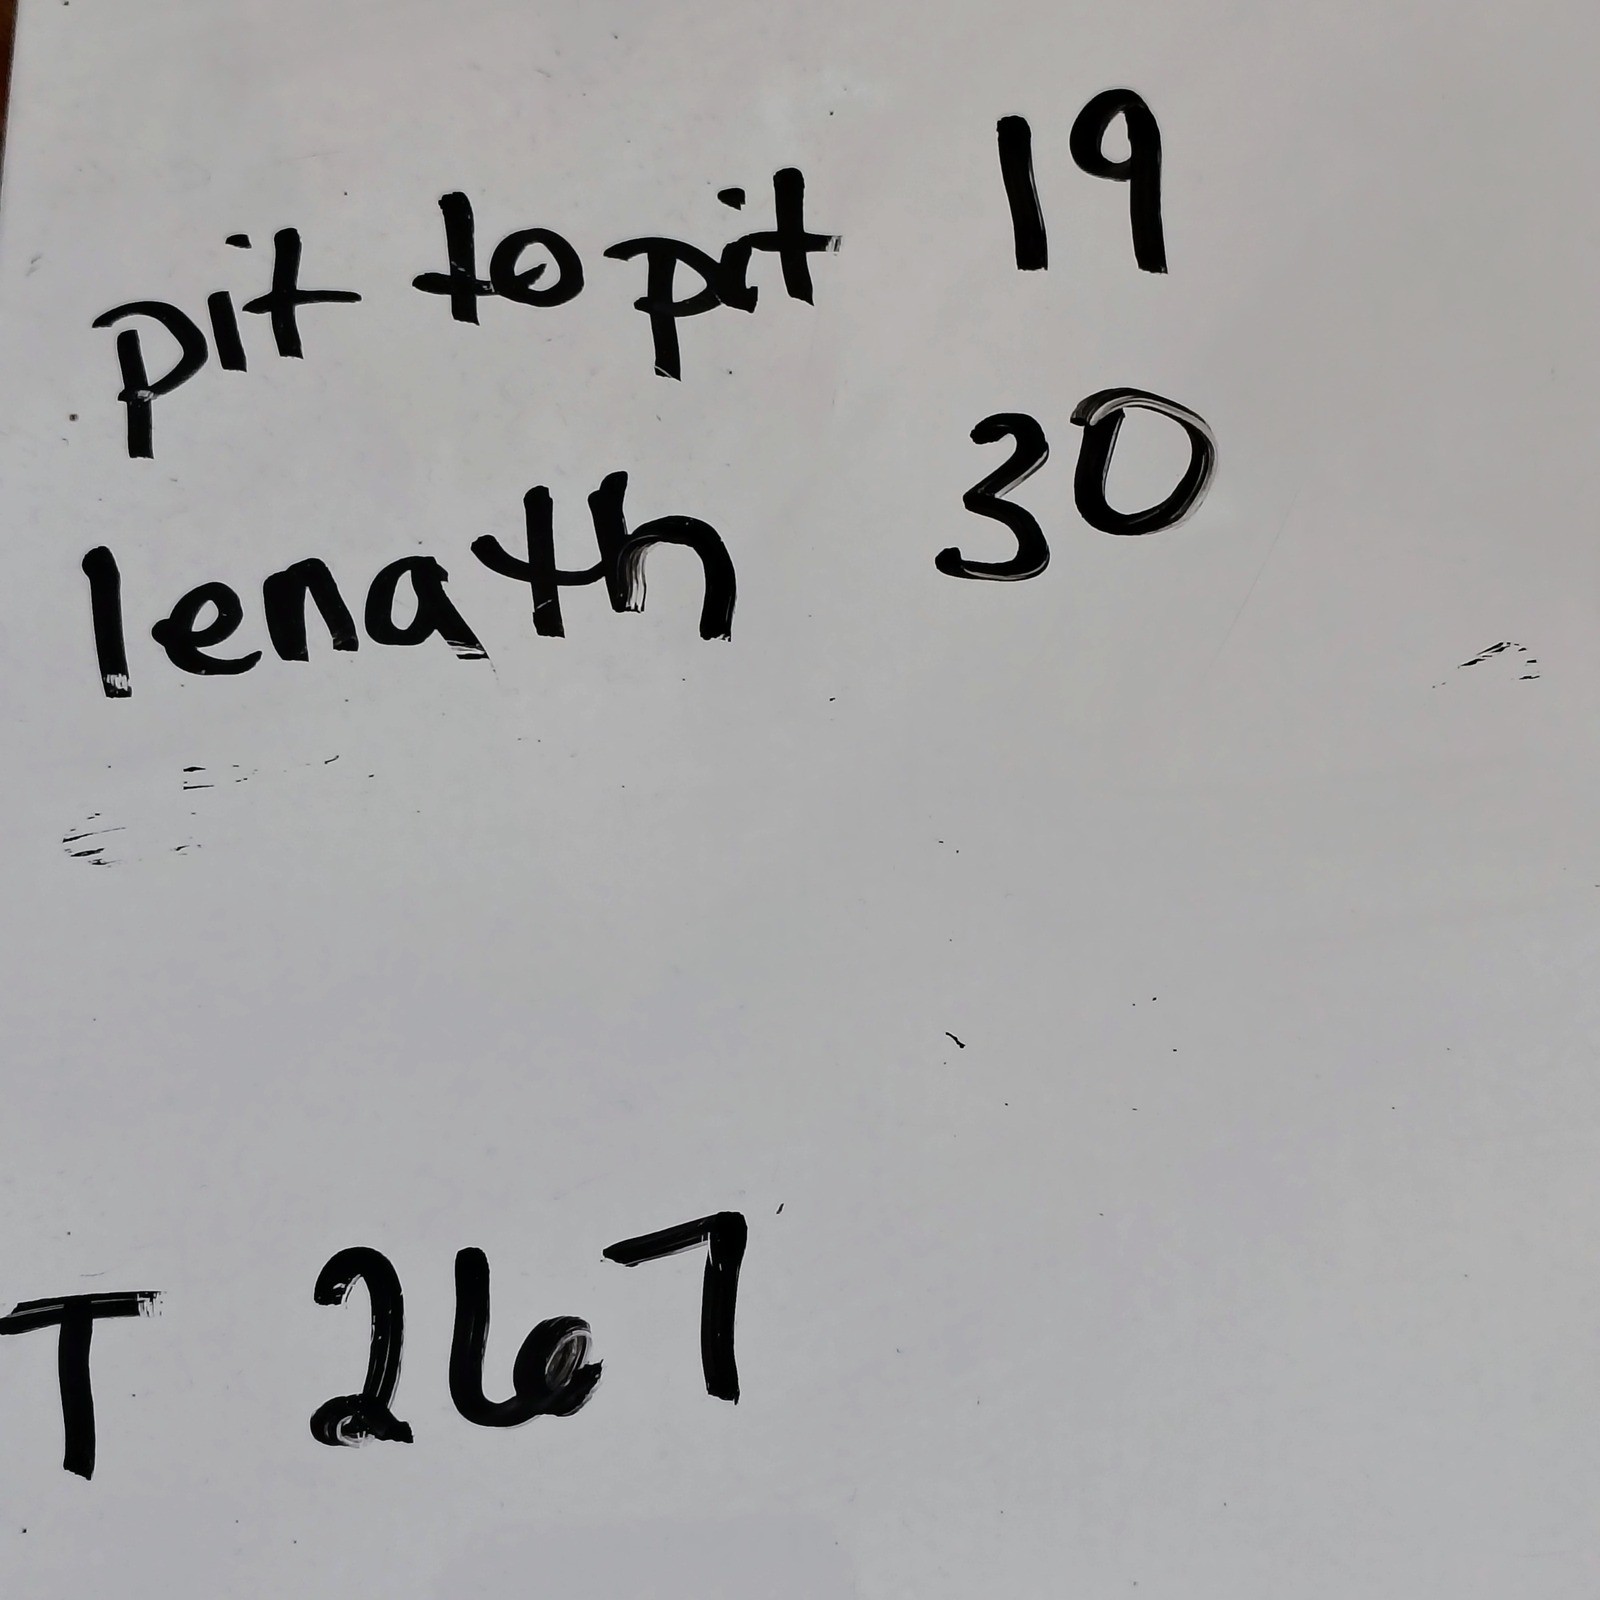 pit to pit 19
length 30
T 267